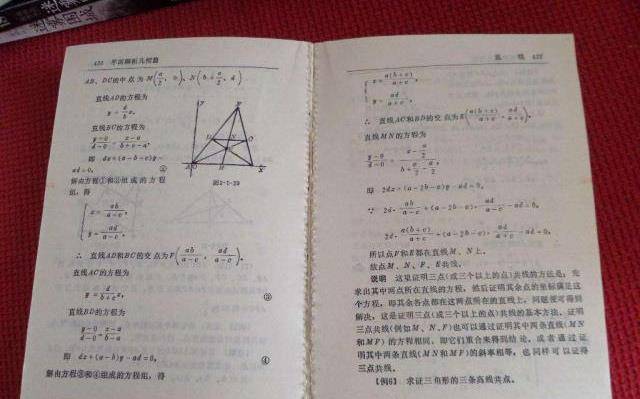 420 平面解析几何篇
AB、DC的中点为M(a/2, 0)、N(b+c/2, d)
直线AD的方程为
y=d/b x,
直线BC的方程为
(y-0)/(d-0)=(x-a)/(b+c-a),
即 dx+(a-b-c)y-
ad=0, ②
解由方程①和②组成的方程
组,得
x=ab/(a-c),
y=ad/(a-c).
∴ 直线AD和BC的交点为F(ab/(a-c), ad/(a-c)).
直线AC的方程为
y=d/(b+c) x, ③
直线BD的方程为
(y-0)/(d-0)=(x-a)/(b-a)
即 dx+(a-b)y-ad=0, ④
解由方程③和④组成的方程组,得
y
F
D N C
E
A O M B x
图2-1-29
直 线 421
x=a(b+c)/(a+c),
y=ad/(a+c).
∴ 直线AC和BD的交点为E(a(b+c)/(a+c), ad/(a+c)).
直线MN的方程为
(y-0)/(d-0)=(x-a/2)/(b+c/2-a/2),
即 2dx+(a-2b-c)y-ad=0.
∵ 2d·ab/(a-c)+(a-2b-c)·ad/(a-c)-ad=0,
2d·a(b+c)/(a+c)+(a-2b-c)·ad/(a+c)-ad=0.
所以点F和E都在直线M、N上.
故点M、N、F、E共线.
说明 这里证明三点(或三个以上的点)共线的方法是,先
求出其中两点所在直线的方程,然后证明其余点的坐标满足这
个方程,即其余各点都在这两点所在的直线上,问题便可得到
解决,这是证明三点(或三个以上的点)共线的基本方法.证明
三点共线(例如M、N、F)也可以通过证明其中两条直线(MN
和MF)的方程相同,即它们重合来得到结论,或者通过证
明其中两条直线(MN和MF)的斜率相等,也同样可以证得
三点共线.
【例6】 求证三角形的三条高线共点.